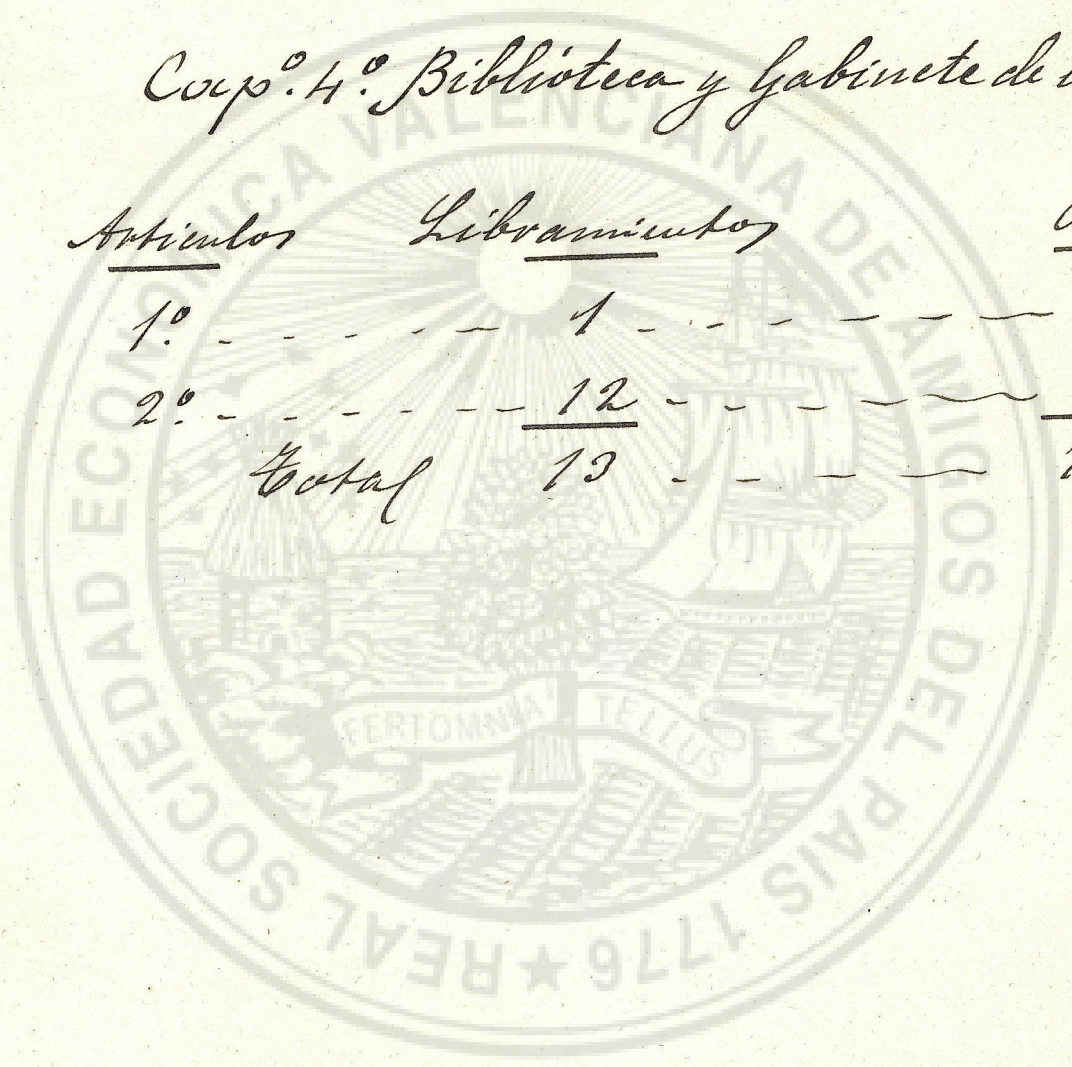 Cap.º 4.º Biblioteca y Gabinete de
Articulos Libramientos
1º - - - - - - 1 - - - - - -
2º - - - - - - 12 - - - - - -
Total 13 - - - - -
REAL SOCIEDAD ECONOMICA VALENCIANA DE AMIGOS DEL PAIS 1776
FERT OMNIA TELLUS